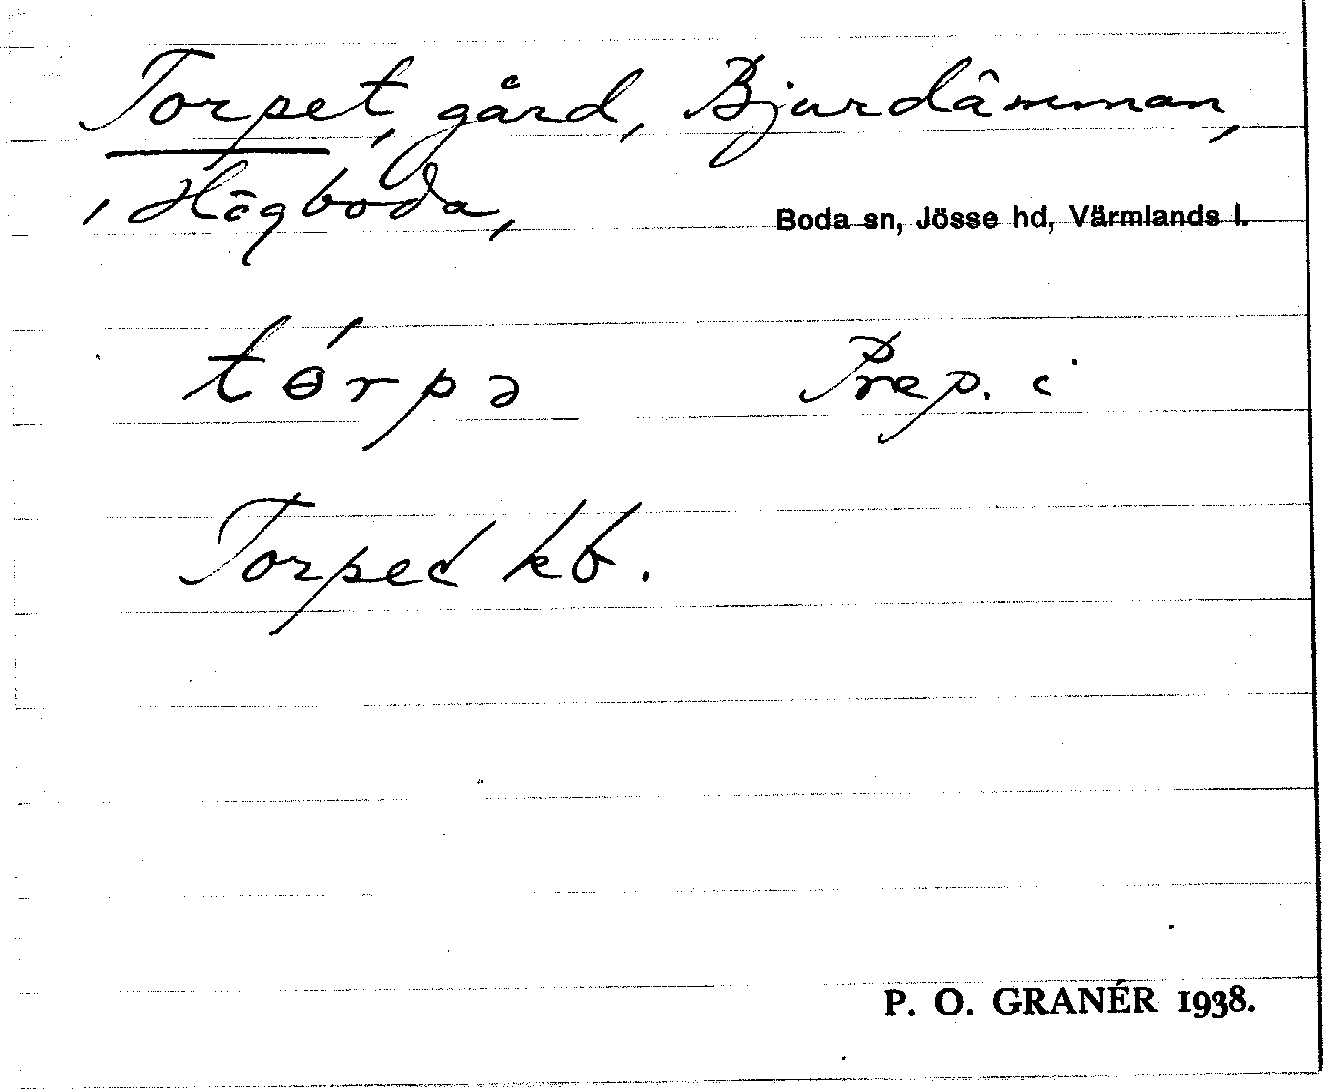 Torpet, gård, Bjurdämman,
, Högboda,
Boda sn, Jösse hd, Värmlands l.
tɵ́rpə Prep. i
Torpet kb.
P. O. GRANÉR 1938.